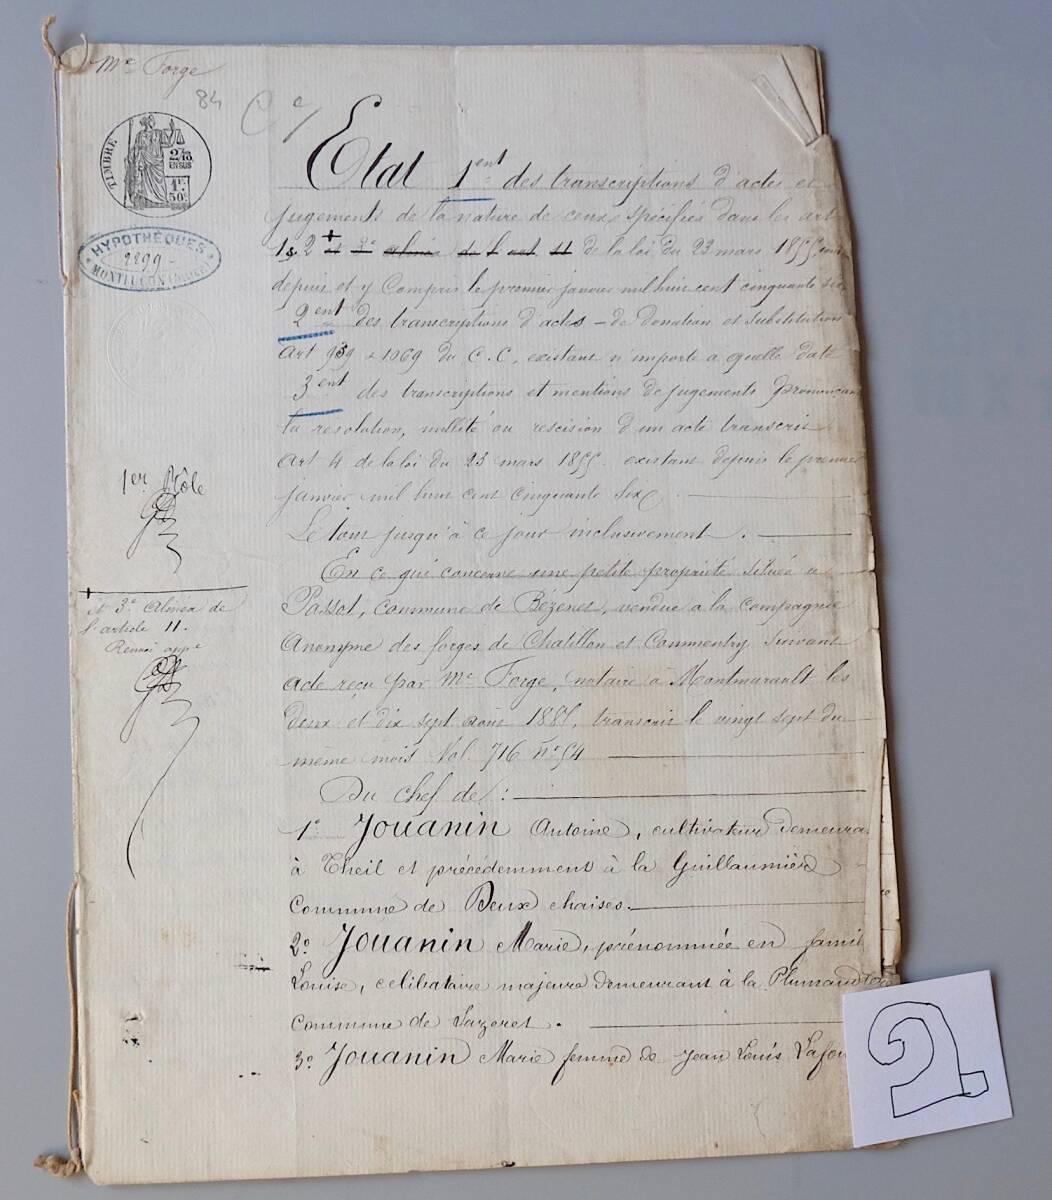 Me Forge
84
TIMBRE
2/10
EN SUS
1F.
50c
HYPOTHÈQUES
2299
MONTLUÇON (ALLIER)
Etat 1ent des transcriptions d'actes et
jugements de la nature de ceux spécifiés dans les art
1 & 2 + et 3e alinéa de l'art 11 de la loi du 23 mars 1855
depuis et y Compris le premier janvier mil huit cent cinquante six
2ent des transcriptions d'actes - de donation et substitution
Art 939 - 1069 du C.C, existant n'importe a quelle date
3ent des transcriptions et mentions de jugements prononçant
la resolution, nullité ou rescision d'un acte transcrit
Art 4 de la loi du 23 mars 1855 existant depuis le premier
janvier mil huit cent cinquante six.
Le tout jusqu'à ce jour inclusivement.
En ce qui concerne une petite propriété située a
Passot, commune de Bézenet, vendue à la compagnie
Anonyme des forges de Chatillon et Commentry suivant
acte reçu par Me Forge, notaire à Montmarault les
deux et dix sept août 1885, transcrit le vingt sept du
même mois Vol. 716 No 54
Du chef de :
1o JOUANIN Antoine, cultivateur demeurant
à Theil et précédemment à la Guillaumière
commune de Deux chaises.
2o JOUANIN Marie, prénommée en famil
Louise, celibataire majeure demeurant à la
commune de Sazeret.
3o JOUANIN Marie femme de Jean Louis Lafou
1er Rôle
+
et 3e Alinea de
l'article 11.
Renvoi appé
2